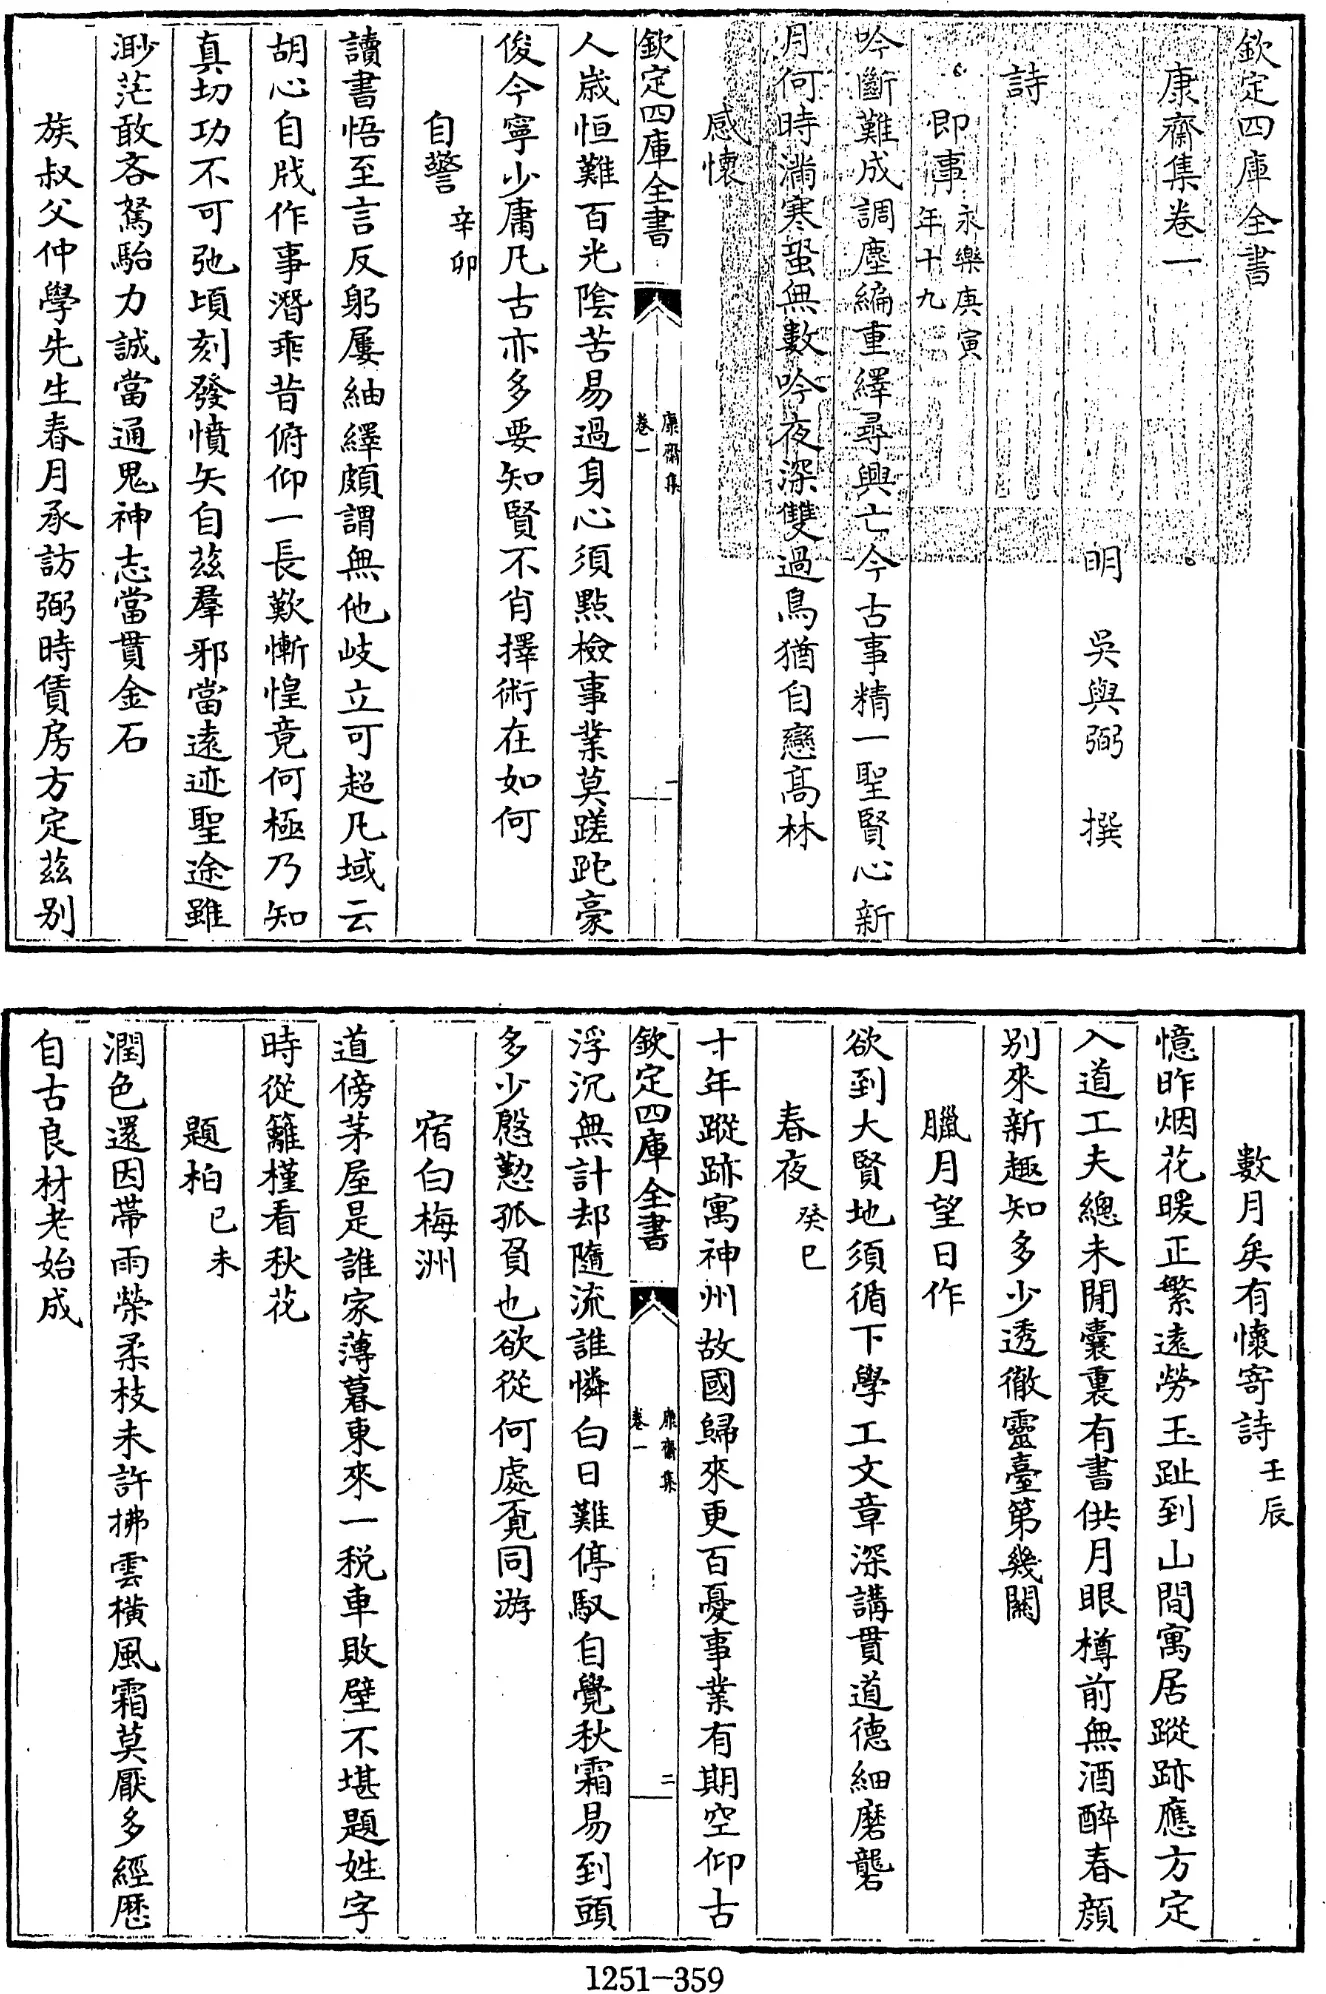 欽定四庫全書
康齋集卷一
明 吳與弼 撰
詩
即事永樂庚寅年十九
吟斷難成調塵編重繹尋興亡今古事精一聖賢心新
月何時滿寒蛩無數吟夜深雙過鳥猶自戀高林
感懷
欽定四庫全書
康齋集
卷一
一
人歳恒難百光陰苦易過身心須點檢事業莫蹉跎豪
俊今寧少庸凡古亦多要知賢不肖擇術在如何
自警辛卯
讀書悟至言反躬屢紬繹頗謂無他岐立可超凡域云
胡心自戕作事潛乖昔俯仰一長歎慚惶竟何極乃知
真切功不可弛頃刻發憤矢自茲羣邪當遠迹聖途雖
渺茫敢吝駑駘力誠當通鬼神志當貫金石
族叔父仲學先生春月承訪弼時賃房方定茲别
數月矣有懷寄詩壬辰
憶昨烟花暖正繁遠勞玉趾到山間寓居蹤跡應方定
入道工夫總未閒囊裏有書供月眼樽前無酒醉春顔
别來新趣知多少透徹靈臺第幾關
臘月望日作
欲到大賢地須循下學工文章深講貫道德細磨礱
春夜癸巳
十年蹤跡寓神州故國歸來更百憂事業有期空仰古
欽定四庫全書
康齋集
卷一
二
浮沉無計却隨流誰憐白日難停馭自覺秋霜易到頭
多少慇懃孤負也欲從何處覔同游
宿白梅洲
道傍茅屋是誰家薄暮東來一税車敗壁不堪題姓字
時從籬槿看秋花
題柏己未
潤色還因帶雨榮柔枝未許拂雲横風霜莫厭多經歴
自古良材老始成
1251-359